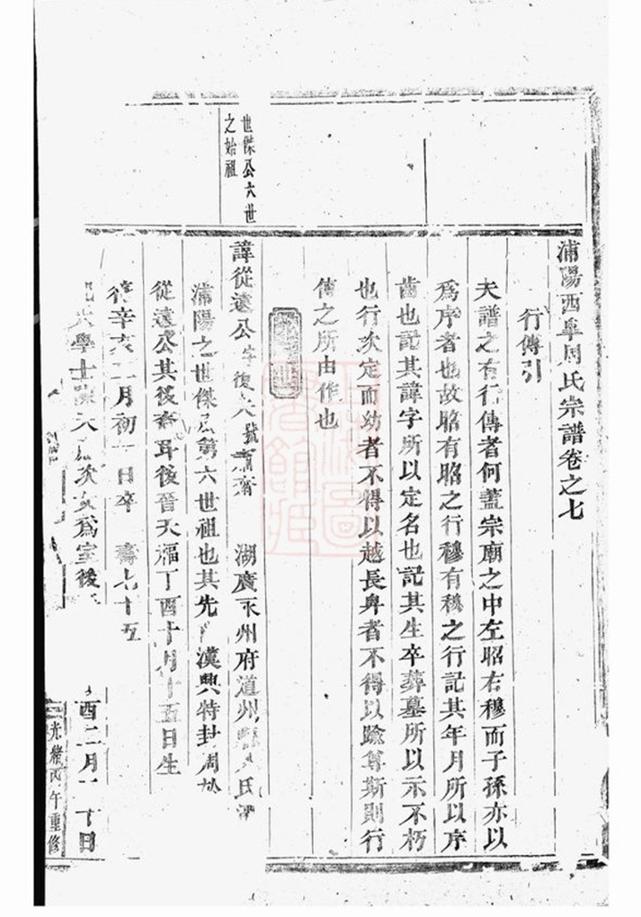 浦陽西皐周氏宗譜卷之七
行傳引
夫譜之有行傳者何蓋宗廟之中左昭右穆而子孫亦以
爲序者也故昭有昭之行穆有穆之行記其年月所以序
齒也記其諱字所以定名也記其生卒葬墓所以示不朽
也行次定而幼者不得以越長卑者不得以踰尊斯則行
傳之所由作也
世傑公六世
之始祖
諱從遠公字復 號 齋 湖廣永州府道州 氏
浦陽之世傑公第六世祖也其先 漢興特封周
從遠公其後裔耳後晉天福丁酉十月十五日生
辛亥二月初 日卒 壽七十五
學士 次女爲室後
酉二月 日
光緒丙午重修